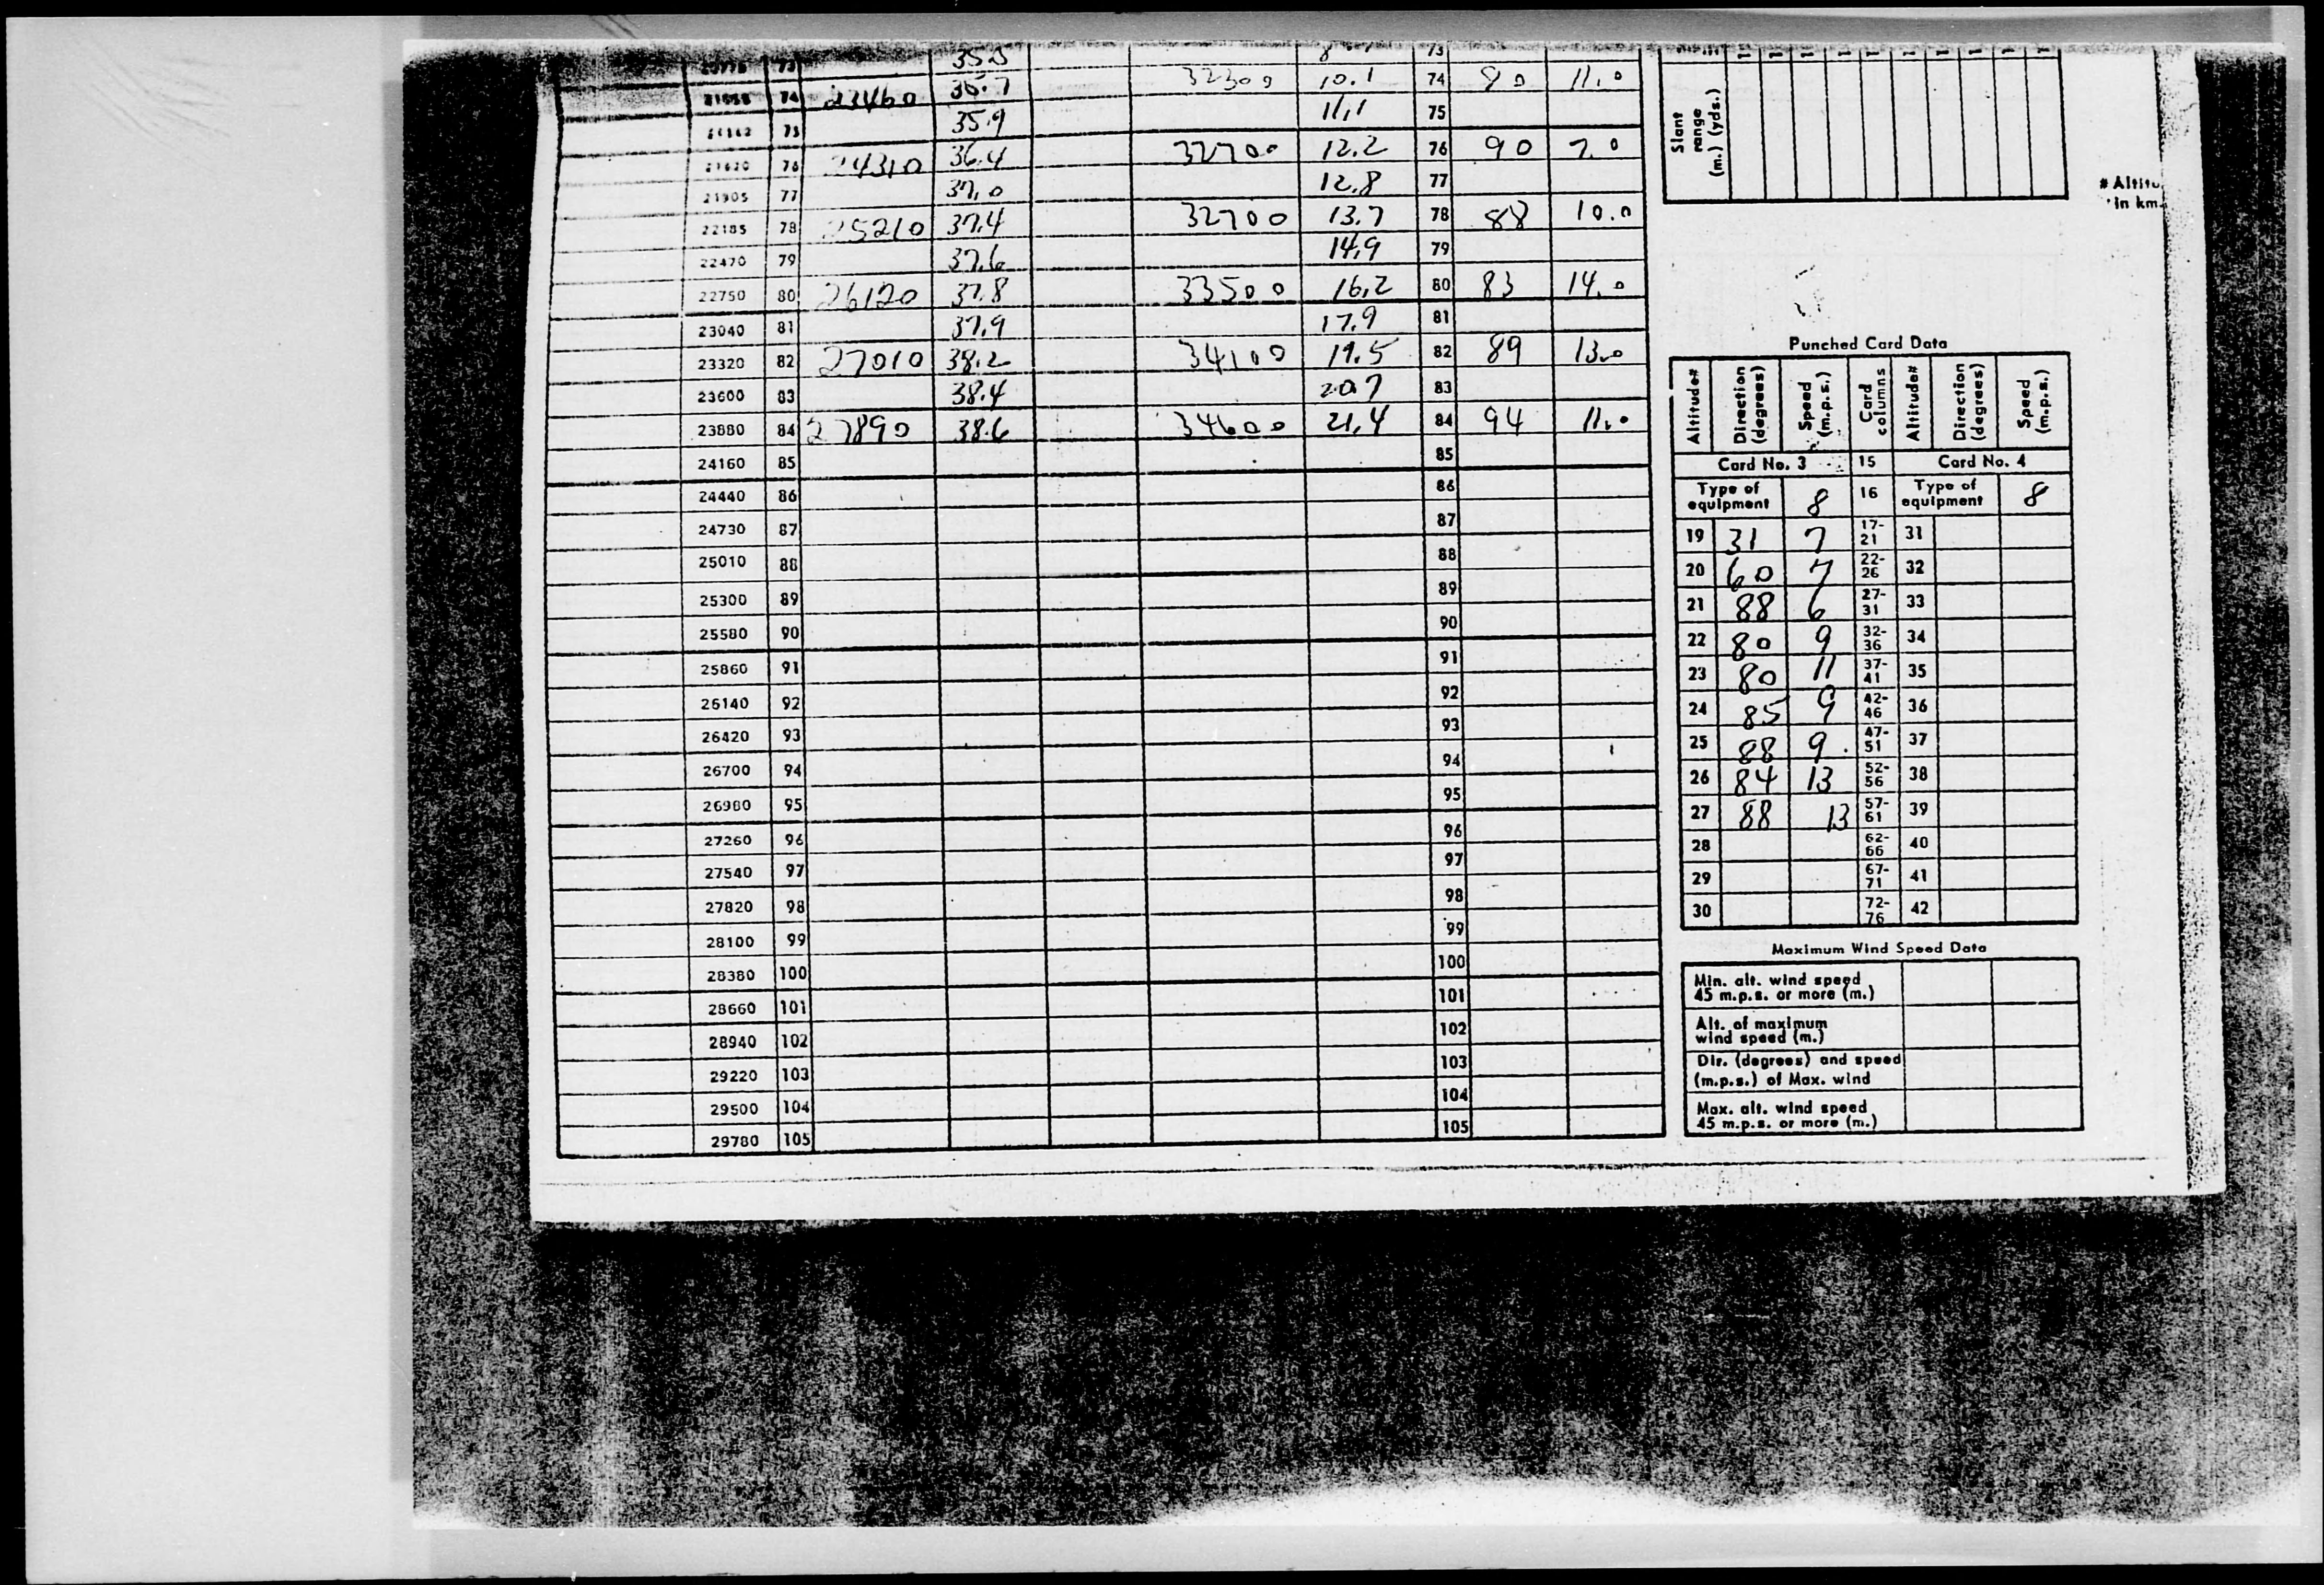 73 35.5 73
74 23460 35.7 32300 10.1 74 80 11.0
75 35.9 11.1 75
21620 76 24310 36.4 32700 12.2 76 90 7.0
21905 77 37.0 12.8 77
22185 78 25210 37.4 32700 13.7 78 88 10.0
22470 79 37.6 14.9 79
22750 80 26120 37.8 33500 16.2 80 83 14.0
23040 81 37.9 17.9 81
23320 82 27010 38.2 34100 19.5 82 89 13.0
23600 83 38.4 20.7 83
23880 84 27890 38.6 34600 21.4 84 94 11.0
24160 85 85
24440 86 86
24730 87 87
25010 88 88
25300 89 89
25580 90 90
25860 91 91
26140 92 92
26420 93 93
26700 94 94
26980 95 95
27260 96 96
27540 97 97
27820 98 98
28100 99 99
28380 100 100
28660 101 101
28940 102 102
29220 103 103
29500 104 104
29780 105 105
Slant
range
(m.) (yds.)
# Altitu
in km.
Punched Card Data
Altitude# Direction (degrees) Speed (m.p.s.) Card columns Altitude# Direction (degrees) Speed (m.p.s.)
Card No. 3 15 Card No. 4
Type of equipment 8 16 Type of equipment 8
19 31 7 17-21 31
20 60 7 22-26 32
21 88 6 27-31 33
22 80 9 32-36 34
23 80 11 37-41 35
24 85 9 42-46 36
25 88 9 47-51 37
26 84 13 52-56 38
27 88 13 57-61 39
28 62-66 40
29 67-71 41
30 72-76 42
Maximum Wind Speed Data
Min. alt. wind speed
45 m.p.s. or more (m.)
Alt. of maximum
wind speed (m.)
Dir. (degrees) and speed
(m.p.s.) of Max. wind
Max. alt. wind speed
45 m.p.s. or more (m.)